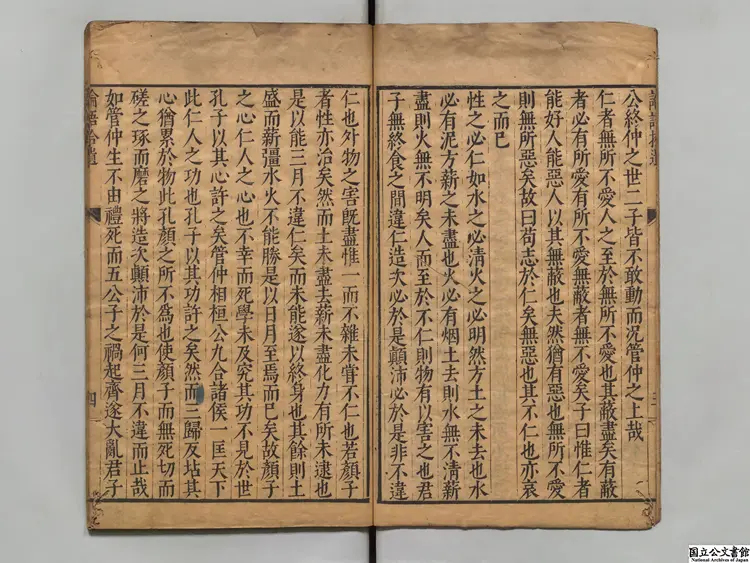 論語拾遺
三
公終仲之世二子皆不敢動而況管仲之上哉
仁者無所不愛人之至於無所不愛也其蔽盡矣有蔽
者必有所愛有所不愛無蔽者無不愛矣子曰惟仁者
能好人能惡人以其無蔽也夫然猶有惡也無所不愛
則無所惡矣故曰苟志於仁矣無惡也其不仁也亦哀
之而已
性之必仁如水之必清火之必明然方土之未去也水
必有泥方薪之未盡也火必有烟土去則水無不清薪
盡則火無不明矣人而至於不仁則物有以害之也君
子無終食之間違仁造次必於是顚沛必於是非不違
仁也外物之害旣盡惟一而不雜未甞不仁也若顔子
者性亦治矣然而土未盡去薪未盡化力有所未逮也
是以能三月不違仁矣而未能遂以終身也其餘則土
盛而薪彊水火不能勝是以日月至焉而已矣故顔子
之心仁人之心也不幸而死學未及究其功不見於世
孔子以其心許之矣管仲相桓公九合諸侯一匡天下
此仁人之功也孔子以其功許之矣然而三歸反坫其
心猶累於物此孔顔之所不爲也使顔子而無死切而
磋之琢而磨之將造次顚沛於是何三月不違而止哉
如管仲生不由禮死而五公子之禍起齊遂大亂君子
論語拾遺
四
国立公文書館
National Archives of Japan